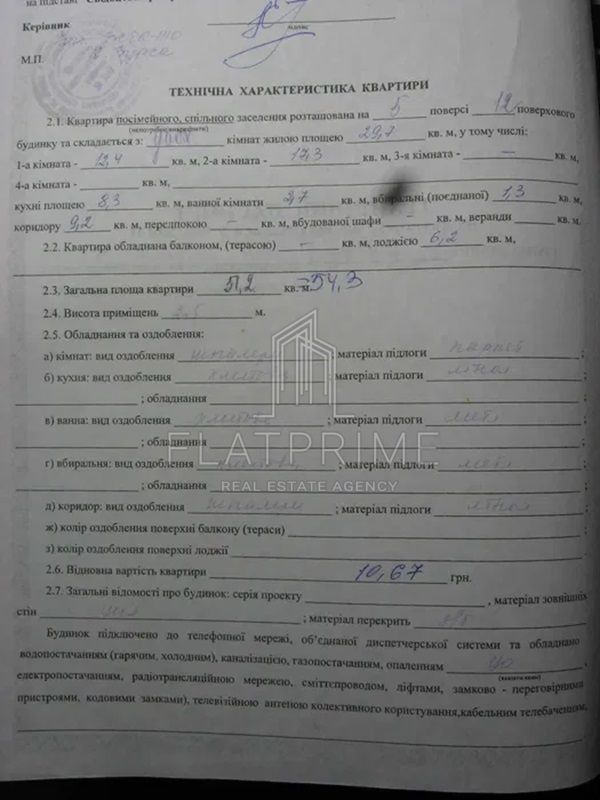 на підставі
Керівник
підпис
М.П.
ТЕХНІЧНА ХАРАКТЕРИСТИКА КВАРТИРИ
2.1. Квартира посімейного, спільного заселення розташована на 5 поверсі 12 поверхового
(непотрібне викреслити)
будинку та складається з: двох кімнат жилою площею 29,7 кв. м, у тому числі:
1-а кімната - 12,4 кв. м, 2-а кімната - 17,3 кв. м, 3-я кімната - — кв. м,
4-а кімната - кв. м,
кухні площею 8,3 кв. м, ванної кімнати 2,7 кв. м, вбиральні (поєднаної) 1,3 кв. м,
коридору 9,2 кв. м, передпокою — кв. м, вбудованої шафи — кв. м, веранди кв. м.
2.2. Квартира обладнана балконом, (терасою) — кв. м, лоджією 6,2 кв. м,
2.3. Загальна площа квартири 51,2 кв. м. 54,3
2.4. Висота приміщень 2,5 м.
2.5. Обладнання та оздоблення:
а) кімнат: вид оздоблення шпалери ; матеріал підлоги паркет ;
б) кухня: вид оздоблення ; матеріал підлоги лінол
; обладнання ;
в) ванна: вид оздоблення ; матеріал підлоги ;
; обладнання ;
FLATPRIME
г) вбиральня: вид оздоблення ; матеріал підлоги ;
REAL ESTATE AGENCY
; обладнання ;
д) коридор: вид оздоблення шпалери ; матеріал підлоги лінол ;
ж) колір оздоблення поверхні балкону (тераси) ;
з) колір оздоблення поверхні лоджії
2.6. Відновна вартість квартири 10,67 грн.
2.7. Загальні відомості про будинок: серія проекту , матеріал зовнішніх
стін ; матеріал перекрить з/б
Будинок підключено до телефонної мережі, об'єднаної диспетчерської системи та обладнано
водопостачанням (гарячим, холодним), каналізацією, газопостачанням, опаленням цо ,
(вказати яким)
електропостачанням, радіотрансляційною мережею, сміттєпроводом, ліфтами, замково - переговорними
пристроями, кодовими замками), телевізійною антеною колективного користування,кабельним телебаченням,